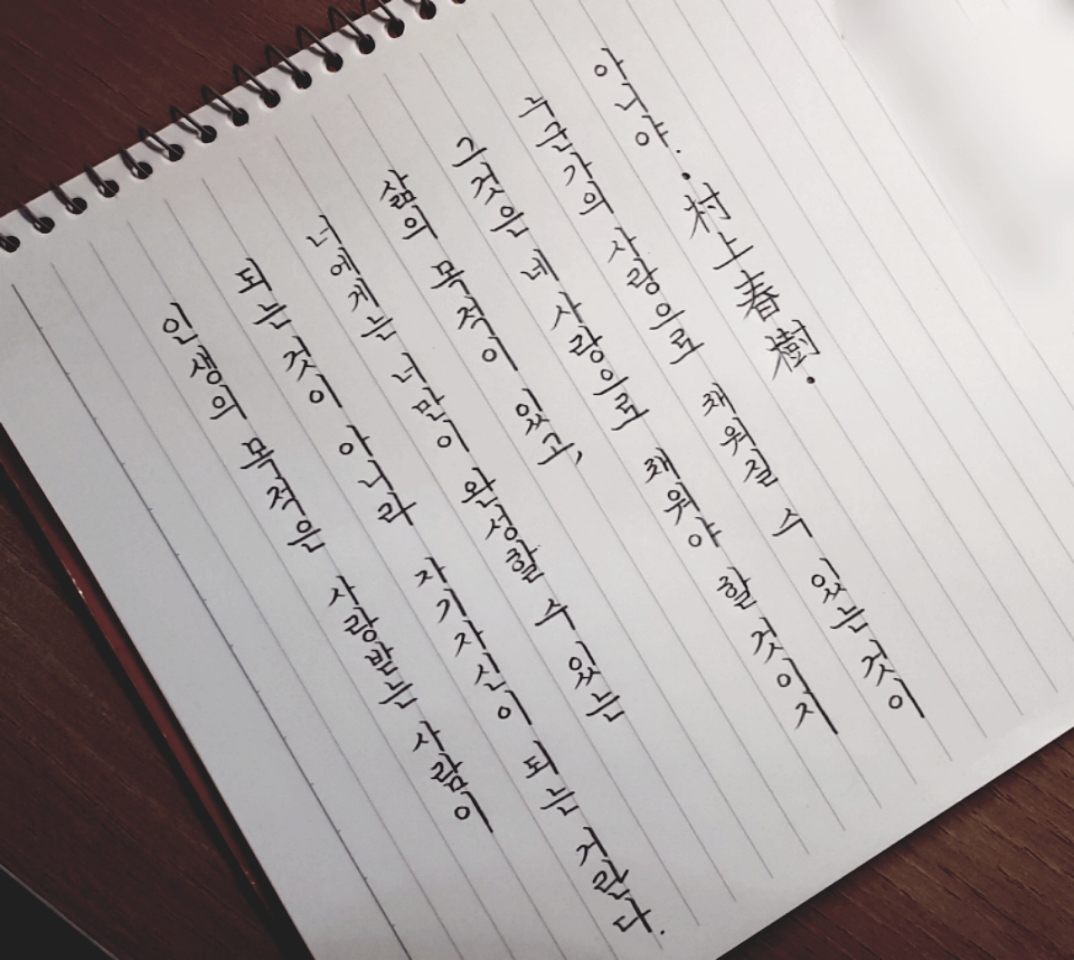 인생의 목적은 사랑받는 사람이
되는것이 아니라 자기자신이 되는 거란다.
너에게는 너만이 완성할 수 있는
삶의 목적이 있고,
그것은 네 사랑으로 채워야 할 것이지
누군가의 사랑으로 채워질 수 있는것이
아니야. •村上春樹•